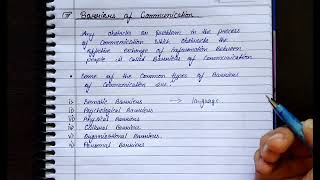 Barriers of Communication
Any obstacles or problem in the process
of Communication which obstructs the
effective exchange of information between
people is called Barriers of Communication
• Some of the Common types of Barriers
of Communication are:
i) Semantic Barriers → language
ii) Psychological Barriers
iii) Physical Barriers
iv) Cultural Barriers
v) Organisational Barriers
vi) Personal Barriers